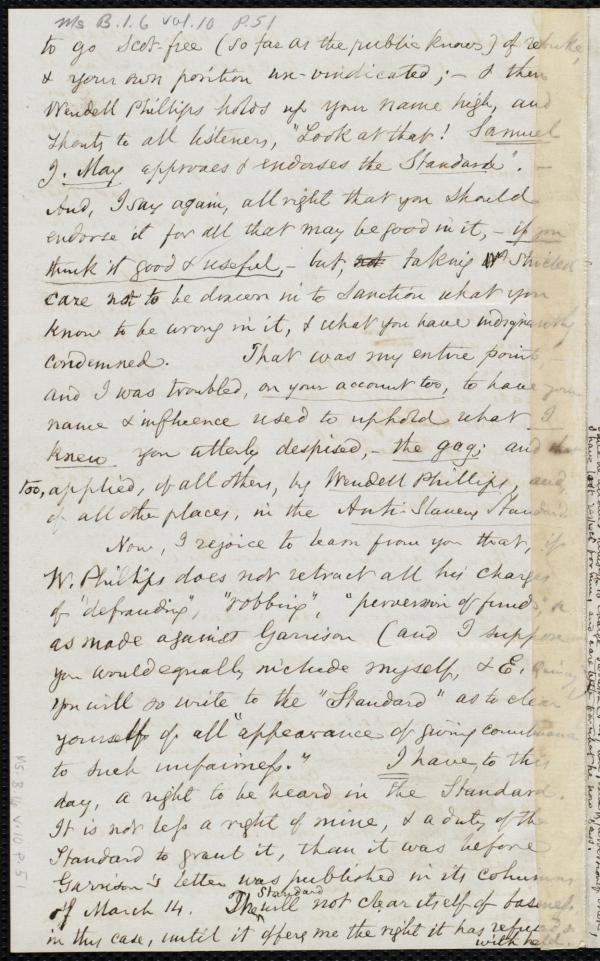 Ms B.1.6 Vol.10 P.51
to go Scot-free (so far as the public knows) of rebuke,
& your own position un-vindicated; – & then
Wendell Phillips holds up your name high, and
shouts to all listeners, "Look at that! Samuel
J. May approves & endorses the Standard". –
And, I say again, all right that you should
endorse it for all that may be good in it, – if you
think it good & useful, – but, taking strictest
care not to be drawn in to sanction what you
know to be wrong in it, & what you have indignantly
condemned. That was my entire point, –
and I was troubled, on your account too, to have your
name & influence used to uphold what I
knew you utterly despised, – the gag; and that
too, applied, of all others, by Wendell Phillips, and,
of all other places, in the Anti-Slavery Standard.
Now, I rejoice to learn from you that, if
W. Phillips does not retract all his charges
of "defrauding", "robbing", "perversion of funds,"
as made against Garrison (and I suppose
you would equally include myself, & E. Quincy)
you will so write to the "Standard" as to clear
yourself of all "appearance of giving countenance
to such unfairness." I have, to this
day, a right to be heard in the Standard.
It is not less a right of mine, & a duty of the
Standard to grant it, than it was before
Garrison's letter was published in its columns
of March 14. The Standard will not clear itself of baseness,
in this case, until it offers me the right it has refused &
withheld.
Ms. B.1.6 V.10 P.51